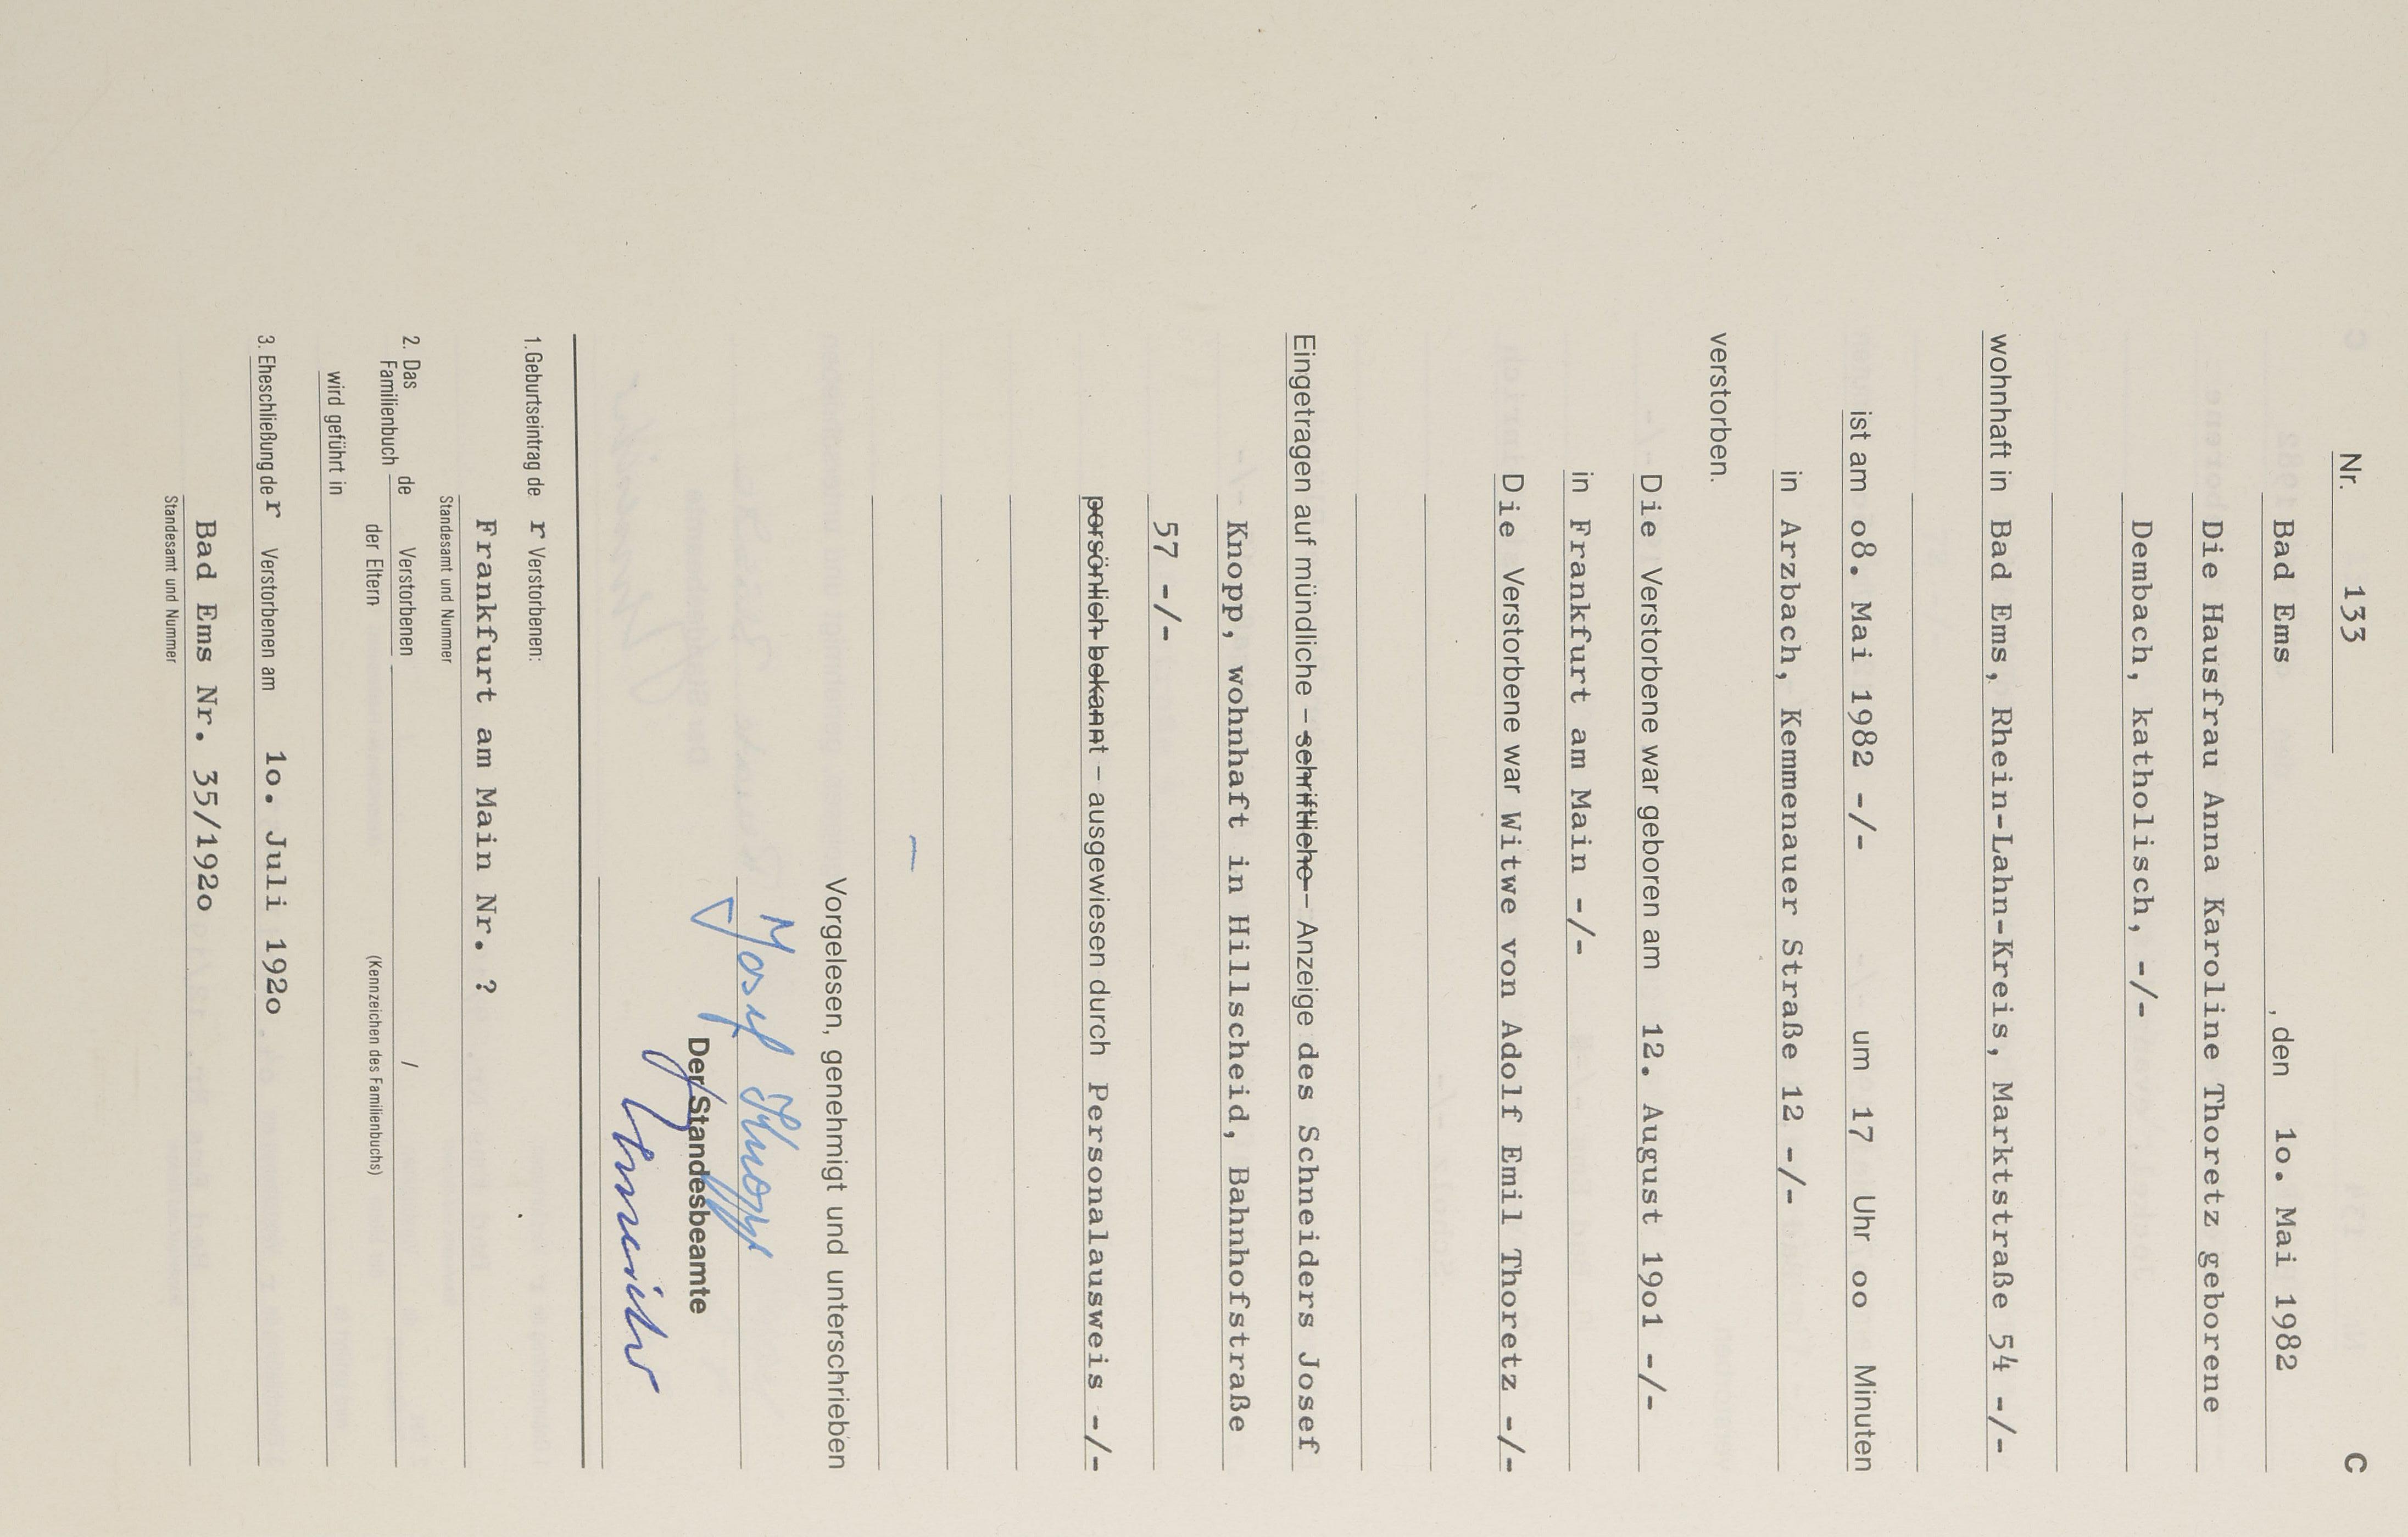 C
Nr. 133
Bad Ems , den 1o. Mai 1982
Die Hausfrau Anna Karoline Thoretz geborene
Dembach, katholisch, -/-
wohnhaft in Bad Ems, Rhein-Lahn-Kreis, Marktstraße 54 -/-
ist am o8. Mai 1982 -/- um 17 Uhr oo Minuten
in Arzbach, Kemmenauer Straße 12 -/-
verstorben.
Die Verstorbene war geboren am 12. August 19o1 -/-
in Frankfurt am Main -/-
Die Verstorbene war Witwe von Adolf Emil Thoretz -/-
Eingetragen auf mündliche – schriftliche – Anzeige des Schneiders Josef
Knopp, wohnhaft in Hillscheid, Bahnhofstraße
57 -/-
persönlich bekannt – ausgewiesen durch Personalausweis -/-
Vorgelesen, genehmigt und unterschrieben
Josef Knopp
Der Standesbeamte
1. Geburtseintrag de r Verstorbenen:
Frankfurt am Main Nr. ?
Standesamt und Nummer
2. Das Familienbuch de Verstorbenen /
der Eltern (Kennzeichen des Familienbuchs)
wird geführt in
3. Eheschließung de r Verstorbenen am 1o. Juli 192o
Bad Ems Nr. 35/192o
Standesamt und Nummer